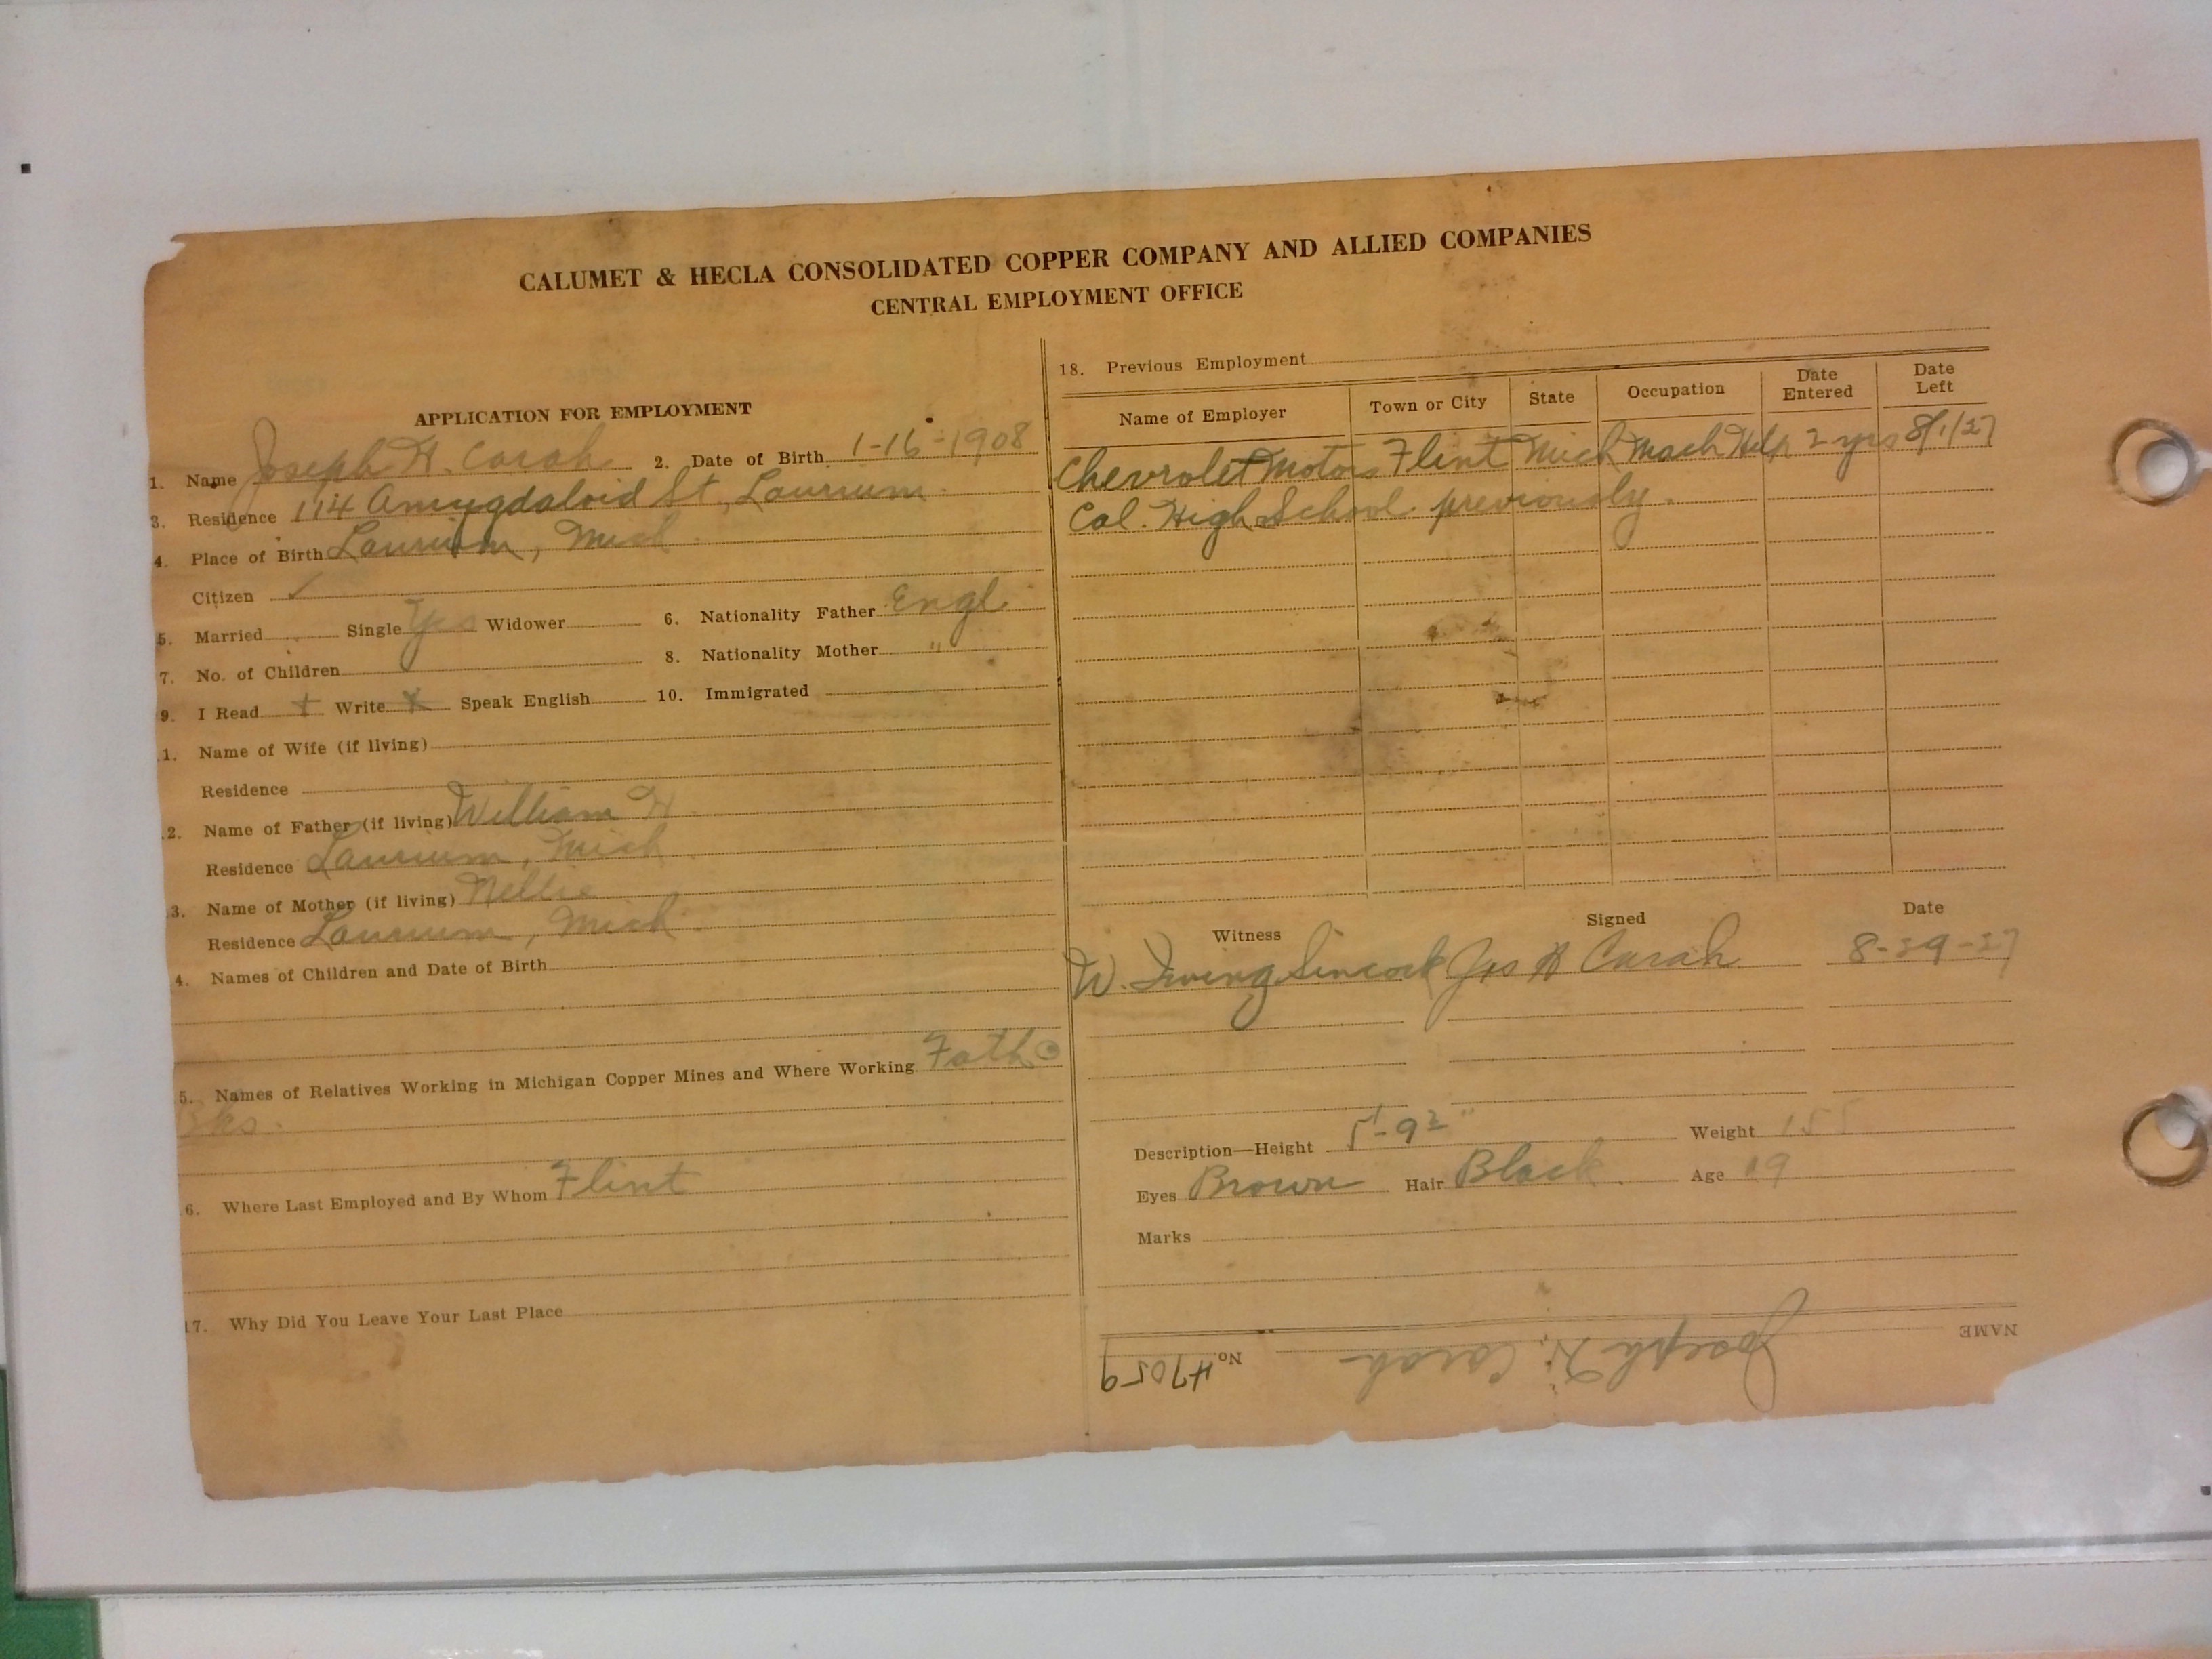 CALUMET & HECLA CONSOLIDATED COPPER COMPANY AND ALLIED COMPANIES
CENTRAL EMPLOYMENT OFFICE
APPLICATION FOR EMPLOYMENT
1. Name Joseph H. Carah 2. Date of Birth 1-16-1908
3. Residence 114 Amygdaloid St, Laurium
4. Place of Birth Laurium, Mich
Citizen ✓
5. Married Single Yes Widower 6. Nationality Father Engl.
7. No. of Children 8. Nationality Mother "
9. I Read + Write + Speak English 10. Immigrated
1. Name of Wife (if living)
Residence
2. Name of Father (if living) William H.
Residence Laurium, Mich
3. Name of Mother (if living) Nellie
Residence Laurium, Mich.
4. Names of Children and Date of Birth
5. Names of Relatives Working in Michigan Copper Mines and Where Working Fath @
6. Where Last Employed and By Whom Flint
17. Why Did You Leave Your Last Place
18. Previous Employment
Name of Employer Town or City State Occupation Date Entered Date Left
Chevrolet Motors Flint Mich Mach Help 2 yrs 8/1/27
Cal. High School previously.
Witness Signed Date
W. Irving Sincock Jos H Carah 8-29-27
Description—Height 5'-9 2" Weight 155
Eyes Brown Hair Black. Age 19
Marks
NAME Joseph H. Carah No. 47059